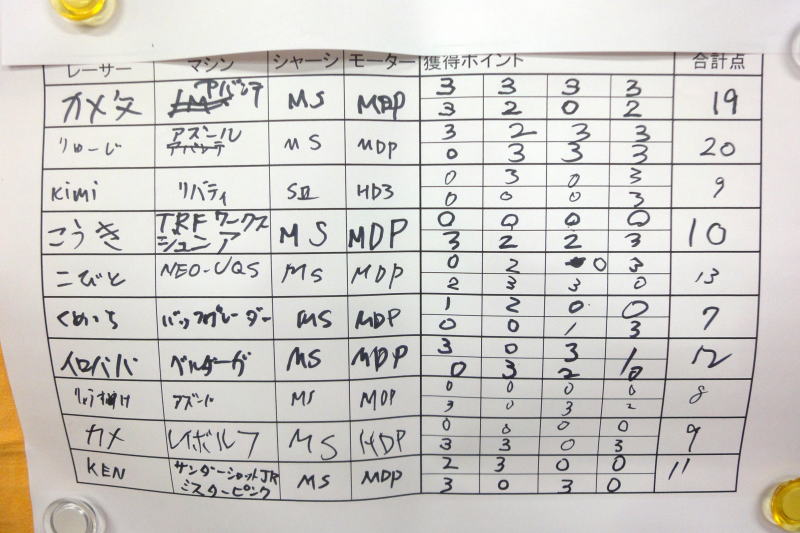 レーサー マシン シャーシ モーター 獲得ポイント 合計点
アバンテ 3 3 3 3
カメ父 MS MDP 3 2 0 2 19
アズール 3 2 3 3
りゅーじ アバンテ MS MDP 0 3 3 3 20
0 3 0 3
kimi リバティ SⅡ HD3 0 0 0 3 9
TRFワークス 0 0 0 0
こうき ジュニア MS MDP 3 2 2 3 10
NEO-VQS 0 2 0 3
こびと MS MDP 2 3 3 0 13
1 2 0 0
くめっち バックブレーダー MS MDP 0 0 1 3 7
3 0 3 1
イロババ ベルダーガ MS MDP 0 3 2 0 12
0 0 0 0
アズール MS MDP 3 0 3 2 8
0 0 0 0
カメ レイボルフ MS HDP 3 3 0 3 9
サンダーショットJR 2 3 0 0
KEN ミスターピンク MS MDP 3 0 3 0 11